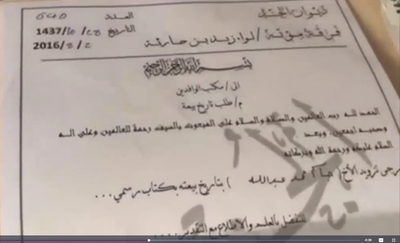 ديوان الجند
العدد
فرقة مؤتة / لواء زيد بن حارثة
التاريخ / /1437
2016/ /
بسم الله الرحمن الرحيم
الى / مكتب الوافدين
م / طلب تاريخ بيعة
الحمد لله رب العالمين والصلاة والسلام على المبعوث بالسيف رحمة للعالمين وعلى اله
وصحبه اجمعين وبعد
السلام عليكم ورحمة الله وبركاته
يرجى تزويد الأخ ( محمد عبدالله ) بتاريخ بيعته بكتاب رسمي...
للتفضل بالعلم والاطلاع مع التقدير...